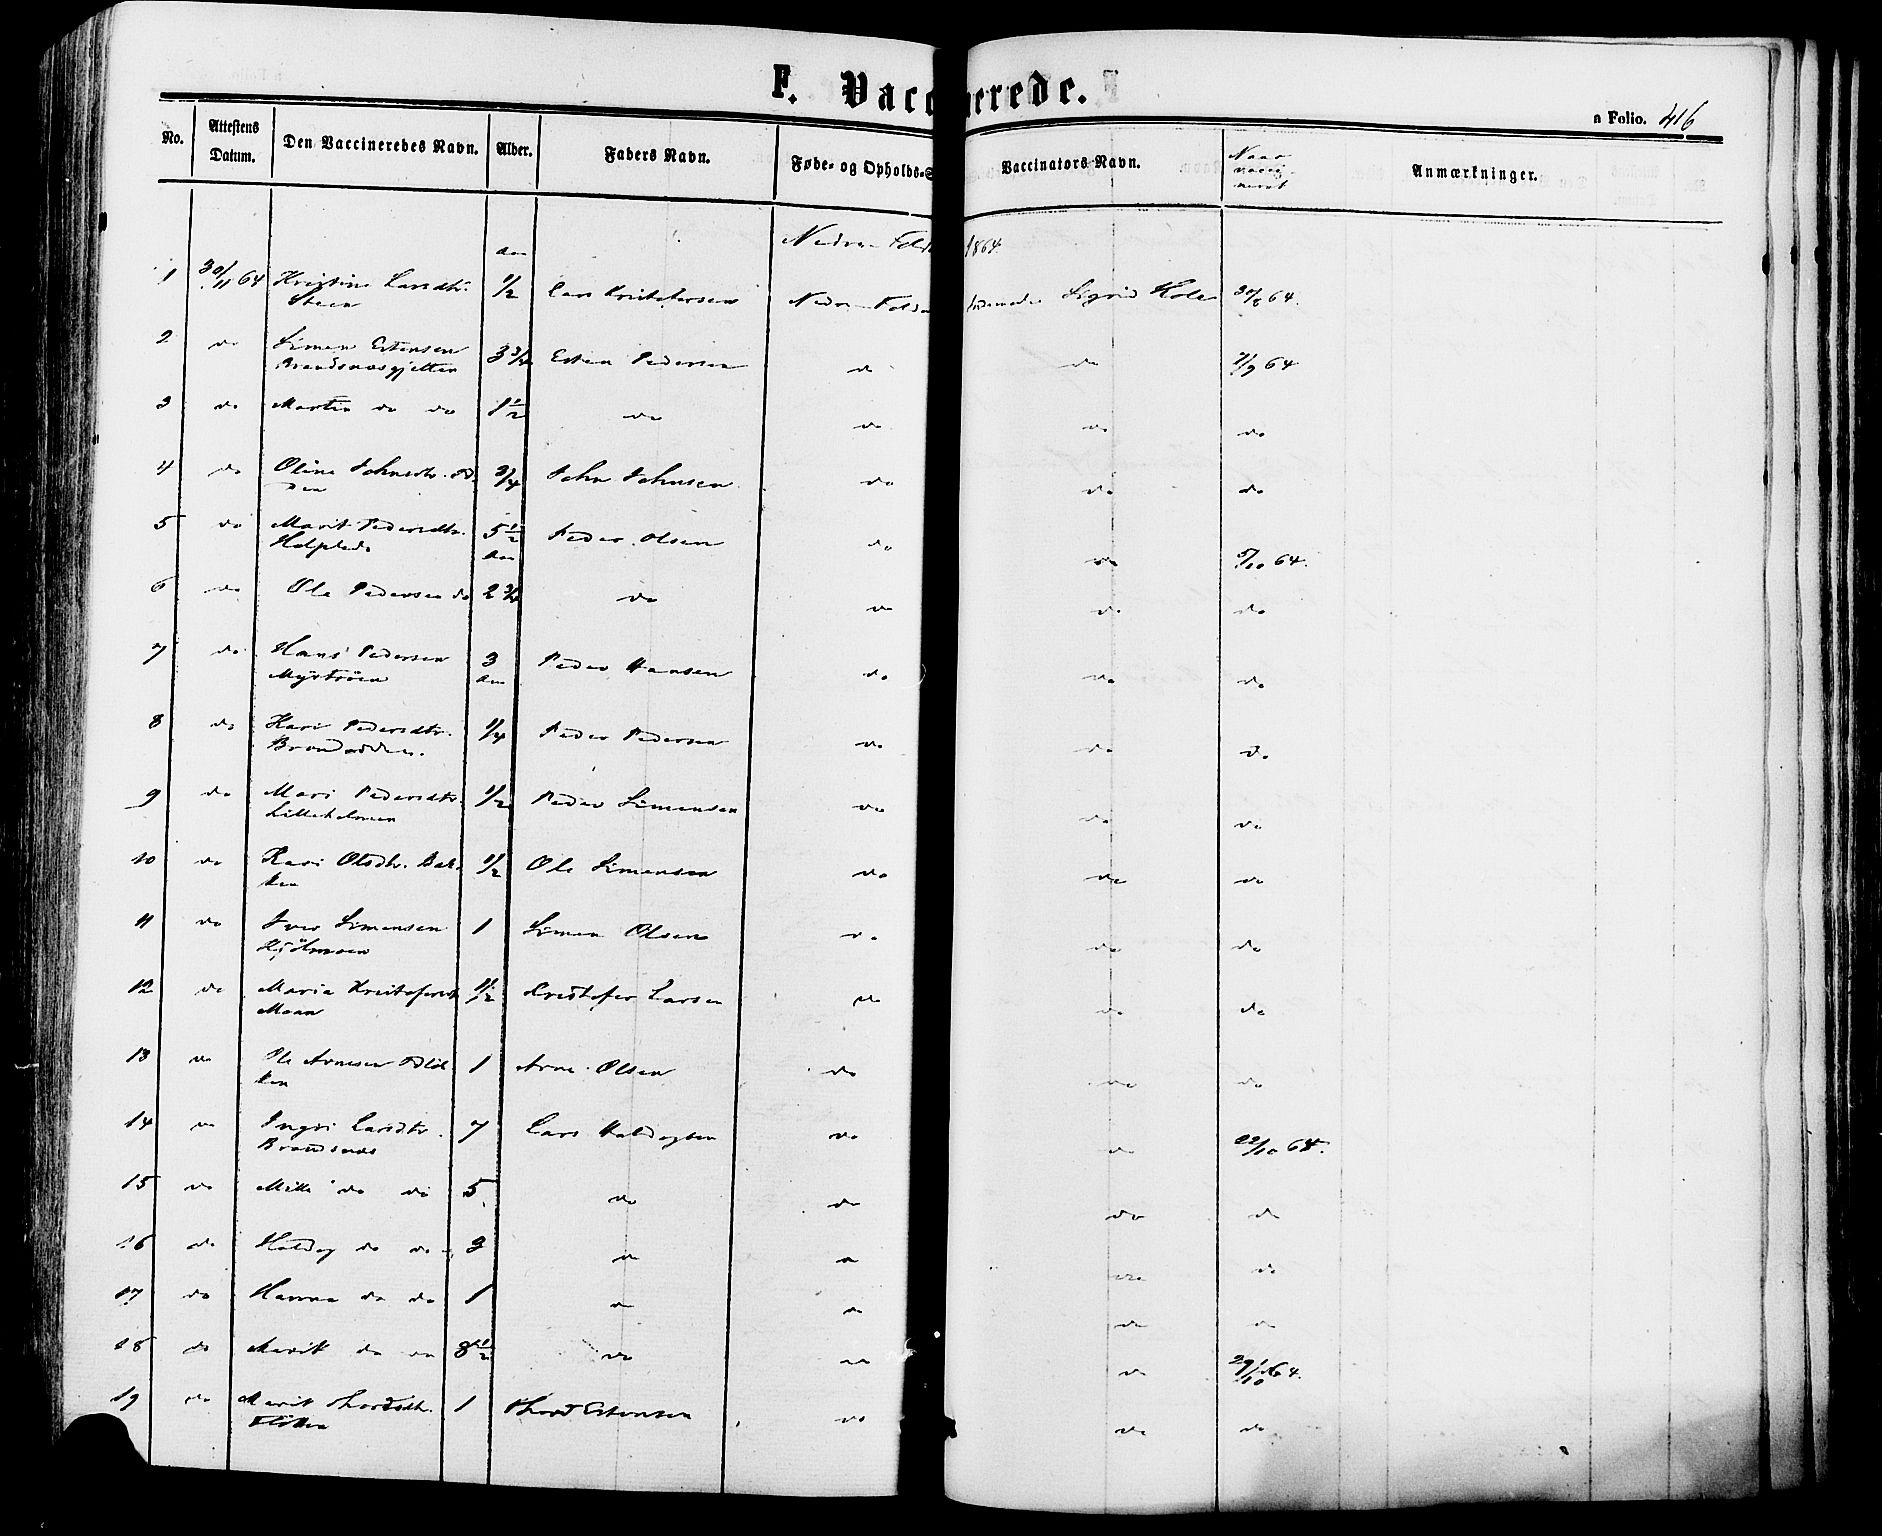 F. Vaccinerede.
a Folio. 416
No. Attestens Datum. Den Vaccineredes Navn. Alder. Faders Navn. Føde- og Opholds-S Vaccinators Navn. Naar vacci- neret Anmærkninger.
aar Nedre Folda 1864.
1 30/11 64 Kristine Larsdtr. 1/2 Lars Kristofersen Nedre Foldal Jordemoder Sigrid Holen 30/8 64.
Steen
2 do Simen Estensen 3 3/4 Esten Pedersen do do 7/9 64
Brandsnæsgjelten
3 do Martin do do 1 1/2 do do do do
4 do Oline Johnsdtr. 3/4 John Johnsen do do do
5 do Marit Pedersdtr. 5 1/2 Peder Olsen do do 5/10 64.
aar
6 do Ole Pedersen do 2 3/4 do do do do
7 do Hans Pedersen 3 Peder Hansen do do do
Myrtrøen aar
8 do Kari Pedersdtr. 1/4 Peder Pedersen do do do
Brandodden.
9 do Mari Pedersdtr. 1/2 Peder Simensen do do do
Lilleholmen
10 do Kari Olsdtr. Bak- 1/2 Ole Simensen do do do
ken
11 do Iver Simensen 1 Simen Olsen do do do
Kjølmoen
12 do Maria Kristofersdt. 1/2 Kristofer Larsen do do do
Moan
13 do Ole Arnesen 1 Arne Olsen do do do
ken
14 do Ingri Larsdtr. 7 Lars Haldogsen do do 22/10 64.
Brandsnæs
15 do do do 5 do do do do
16 do Haldog do do 3 do do do do
17 do Hanna do do 1 do do do do
18 do Marit do do 8 1/2 do do do 29/10 64.
19 do Marit Thordsdtr. 1 Thord Estensen do do do